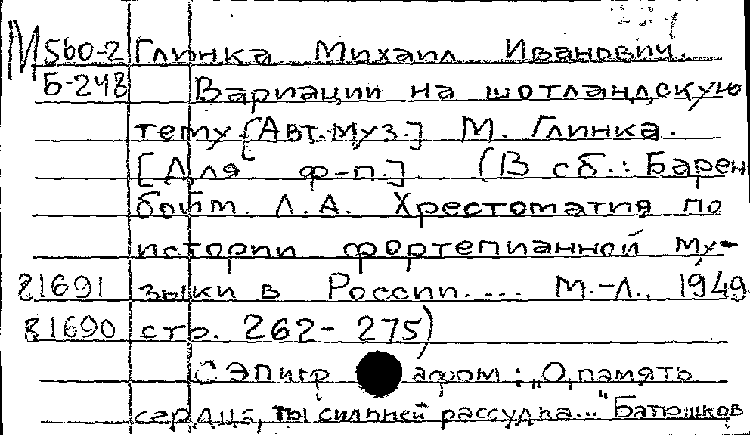 М 560-2 Глинка Михаил Иванович.
Б-248 Вариации на шотландскую
тему [Авт. муз.] М. Глинка.
[Для ф-п.] (В сб.: Барен
бойм. Л. А. Хрестоматия по
истории фортепианной му-
21691 зыки в России.... М.-Л., 1949
21690 стр. 262-275)
С эпиграфом: „О, память
сердца, ты сильней рассудка..." Батюшков